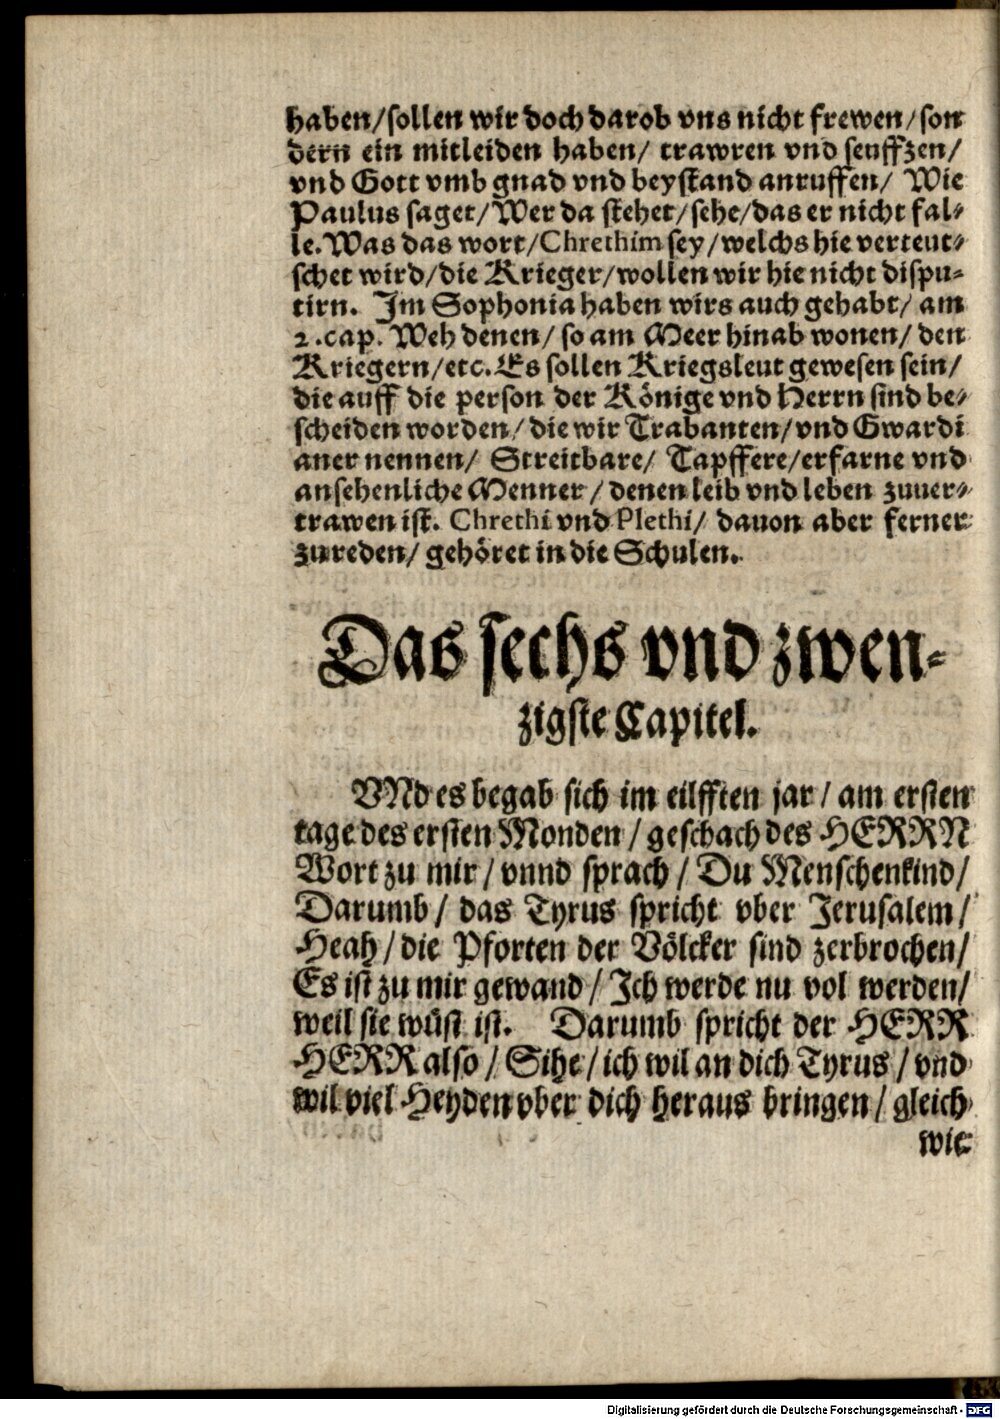 haben/sollen wir doch darob vns nicht frewen/son
dern ein mitleiden haben/ trawren vnd seuffzen/
vnd Gott vmb gnad vnd beystand anruffen/ Wie
Paulus saget/Wer da stehet/sehe/das er nicht fal-
le. Was das wort/Chrethim sey/welchs hie verteut-
schet wird/die Krieger/wollen wir hie nicht dispu-
tirn. Im Sophonia haben wirs auch gehabt/ am
2.cap. Weh denen/ so am Meer hinab wonen/ den
Kriegern/etc. Es sollen Kriegsleut gewesen sein/
die auff die person der Könige vnd Herrn sind be-
scheiden worden/die wir Trabanten/vnd Gwardi
aner nennen/ Streitbare/ Tapffere/erfarne vnd
ansehenliche Menner/denen leib vnd leben zuuer-
trawen ist. Chrethi vnd Plethi/ dauon aber ferner
zureden/ gehöret in die Schulen.
Das sechs vnd zwen-
zigste Capitel.
VNd es begab sich im eilfften jar/ am ersten
tage des ersten Monden/ geschach des HERRN
Wort zu mir/ vnnd sprach/ Du Menschenkind/
Darumb/ das Tyrus spricht vber Jerusalem/
Heah/die Pforten der Völcker sind zerbrochen/
Es ist zu mir gewand/ Ich werde nu vol werden/
weil sie wüst ist. Darumb spricht der HERR
HERR also/ Sihe/ich wil an dich Tyrus/ vnd
wil viel Heyden vber dich heraus bringen/ gleich
wie
Digitalisierung gefördert durch die Deutsche Forschungsgemeinschaft - DFG